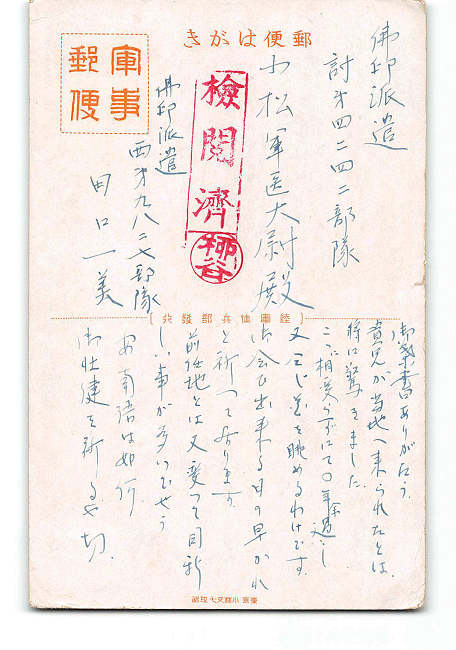 郵便はがき
軍事
郵便
佛印派遣
討才四二四二部隊
小松軍医大尉殿
檢閲濟
柿谷
佛印派遣
西才九八二七部隊
田口一美
陸軍恤兵部發行
御葉書ありがたう
貴兄が当地へ来られたとは
特に驚きました
こゝ相変らずにて〇年余過し
又同じ花を眺めるわけです
お会ひ出来る日の早かれ
と祈つて居ります
前任地とは又変つて目新
しい事が多いでせう
安南語は如何
御壮健を祈るや切